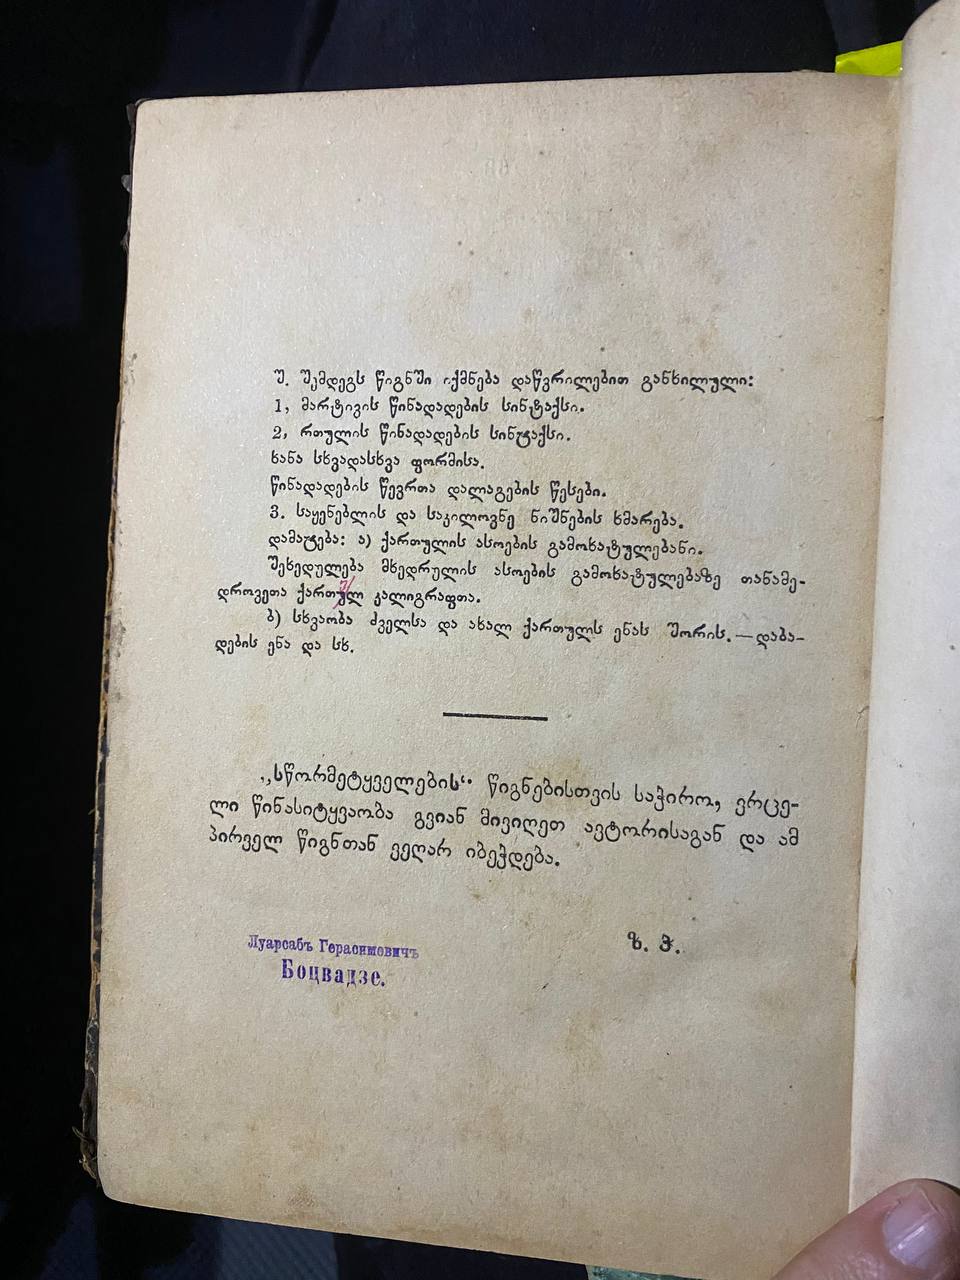 შ. შემდეგს წიგნში იქმნება დაწვრილებით განხილული:
1, მარტივის წინადადების სინტაქსი.
2, რთულის წინადადების სინტაქსი.
ხანა სხვადასხვა ფორმისა.
წინადადების წევრთა დალაგების წესები.
3. საყენებლის და საკილოვნე ნიშნების ხმარება.
დამატება: ა) ქართულის ასოების გამოხატულებანი.
შეხედულება მხედრულის ასოების გამოხატულებაზე თანამე-
დროვეთა ქართულ კალიგრაფთა.
ბ) სხვაობა ძველსა და ახალ ქართულს ენას შორის.—დაბა-
დების ენა და სხ.
„სწორმეტყველების“ წიგნებისთვის საჭირო, ვრცე-
ლი წინასიტყვაობა გვიან მივიღეთ ავტორისაგან და ამ
პირველ წიგნთან ვეღარ იბეჭდება.
ზ. ჭ.
Луарсабъ Герасимовичъ
Боцвадзе.